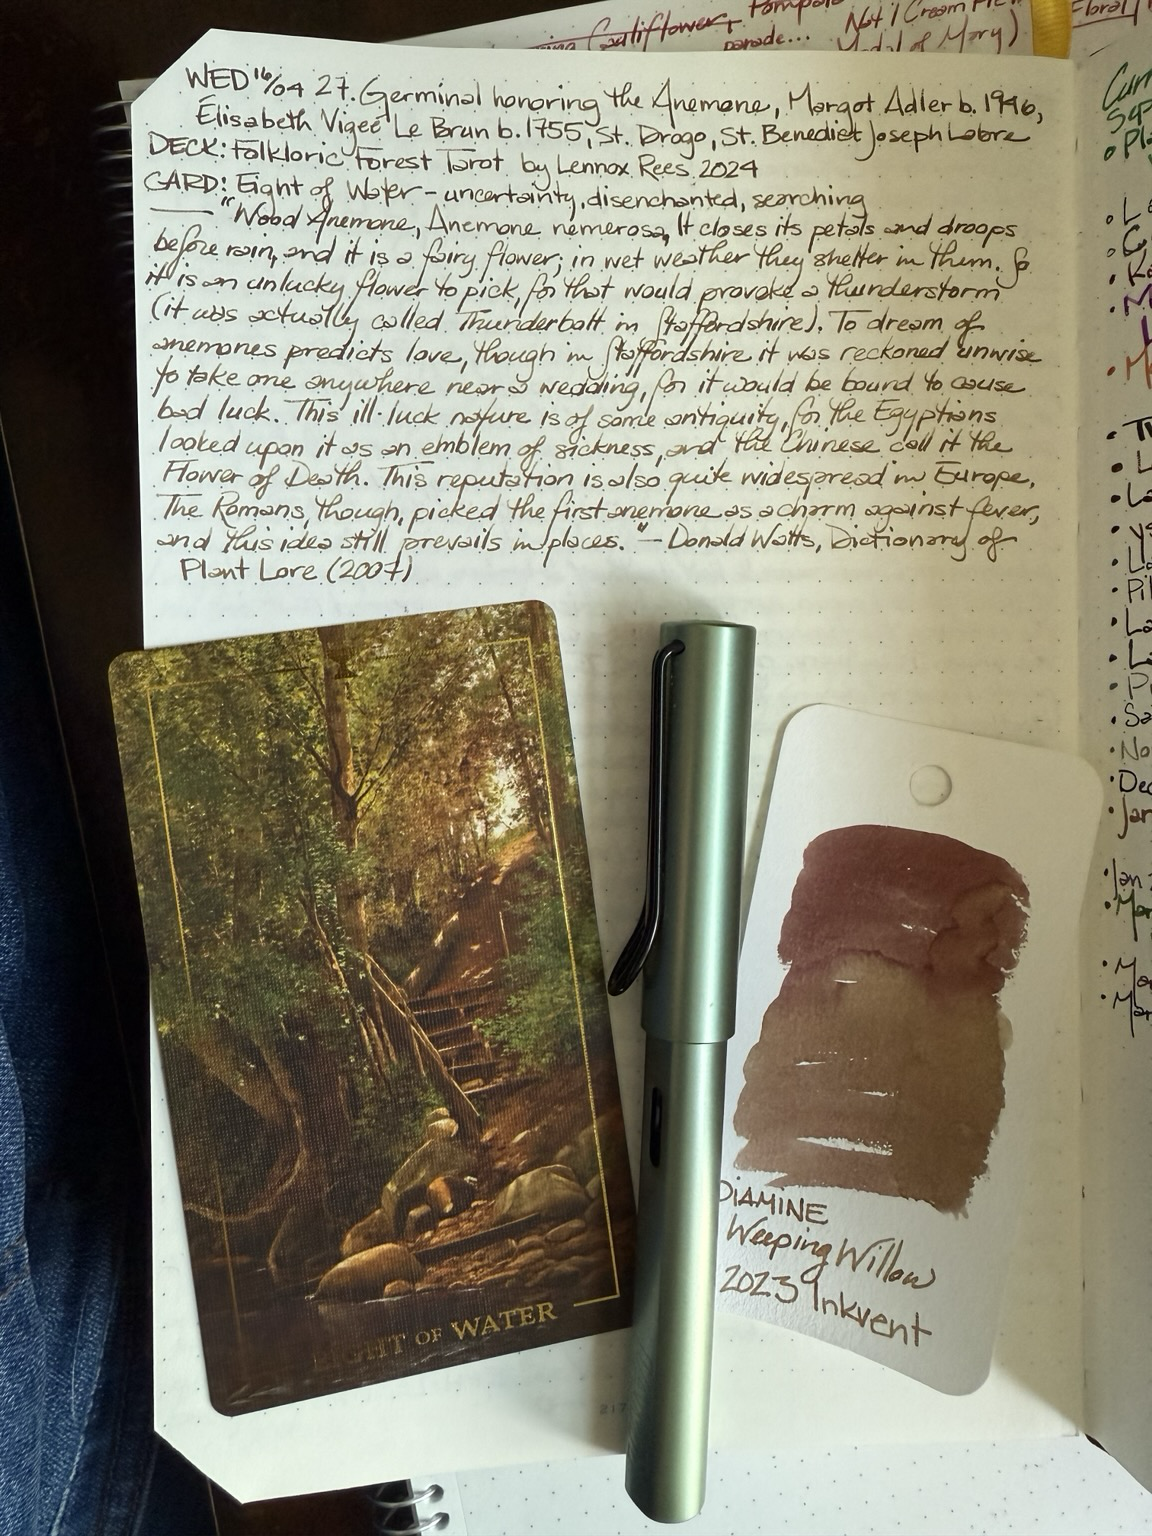 Cauliflower, Pompo
Not 1 Cream Pie
parade...
Medal of Mary)
Floral
WED 16/04 27. Germinal honoring the Anemone, Margot Adler b. 1946,
Élisabeth Vigée Le Brun b. 1755, St. Drogo, St. Benedict Joseph Labre
DECK: Folkloric Forest Tarot by Lennox Rees 2024
CARD: Eight of Water - uncertainty, disenchanted, searching
"Wood Anemone, Anemone nemerosa, It closes its petals and droops
before rain, and it is a fairy flower; in wet weather they shelter in them. So
it is an unlucky flower to pick, for that would provoke a thunderstorm
(it was actually called Thunderbolt in Staffordshire). To dream of
anemones predicts love, though in Staffordshire it was reckoned unwise
to take one anywhere near a wedding, for it would be bound to cause
bad luck. This ill-luck nature is of some antiquity, for the Egyptians
looked upon it as an emblem of sickness, and the Chinese call it the
Flower of Death. This reputation is also quite widespread in Europe.
The Romans, though, picked the first anemone as a charm against fever,
and this idea still prevails in places." — Donald Watts, Dictionary of
Plant Lore (2007)
EIGHT OF WATER
DIAMINE
Weeping Willow
2023 Inkvent
217
Dec
Jan
Jan
Mar
Mar
Mar